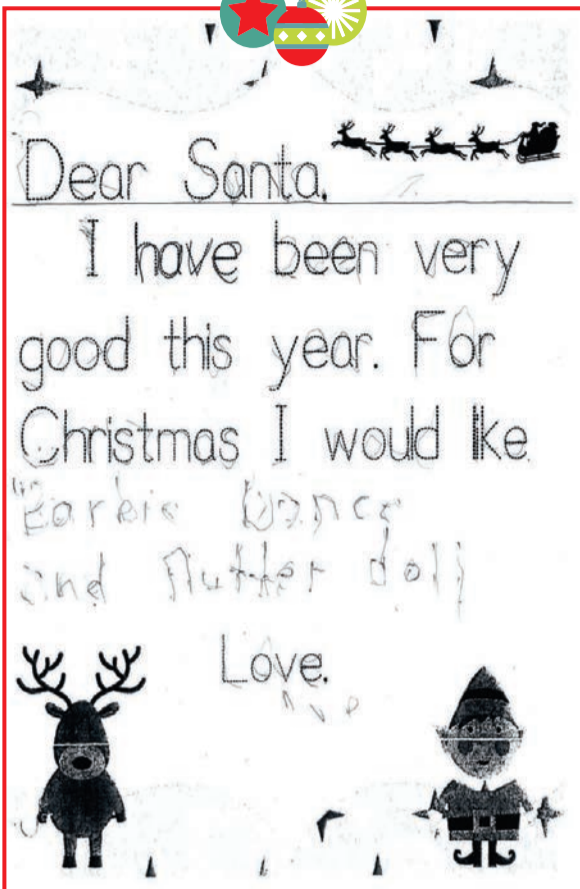 Dear Santa,
I have been very
good this year. For
Christmas I would like
Barbie Dance
and flutter doll
Love,